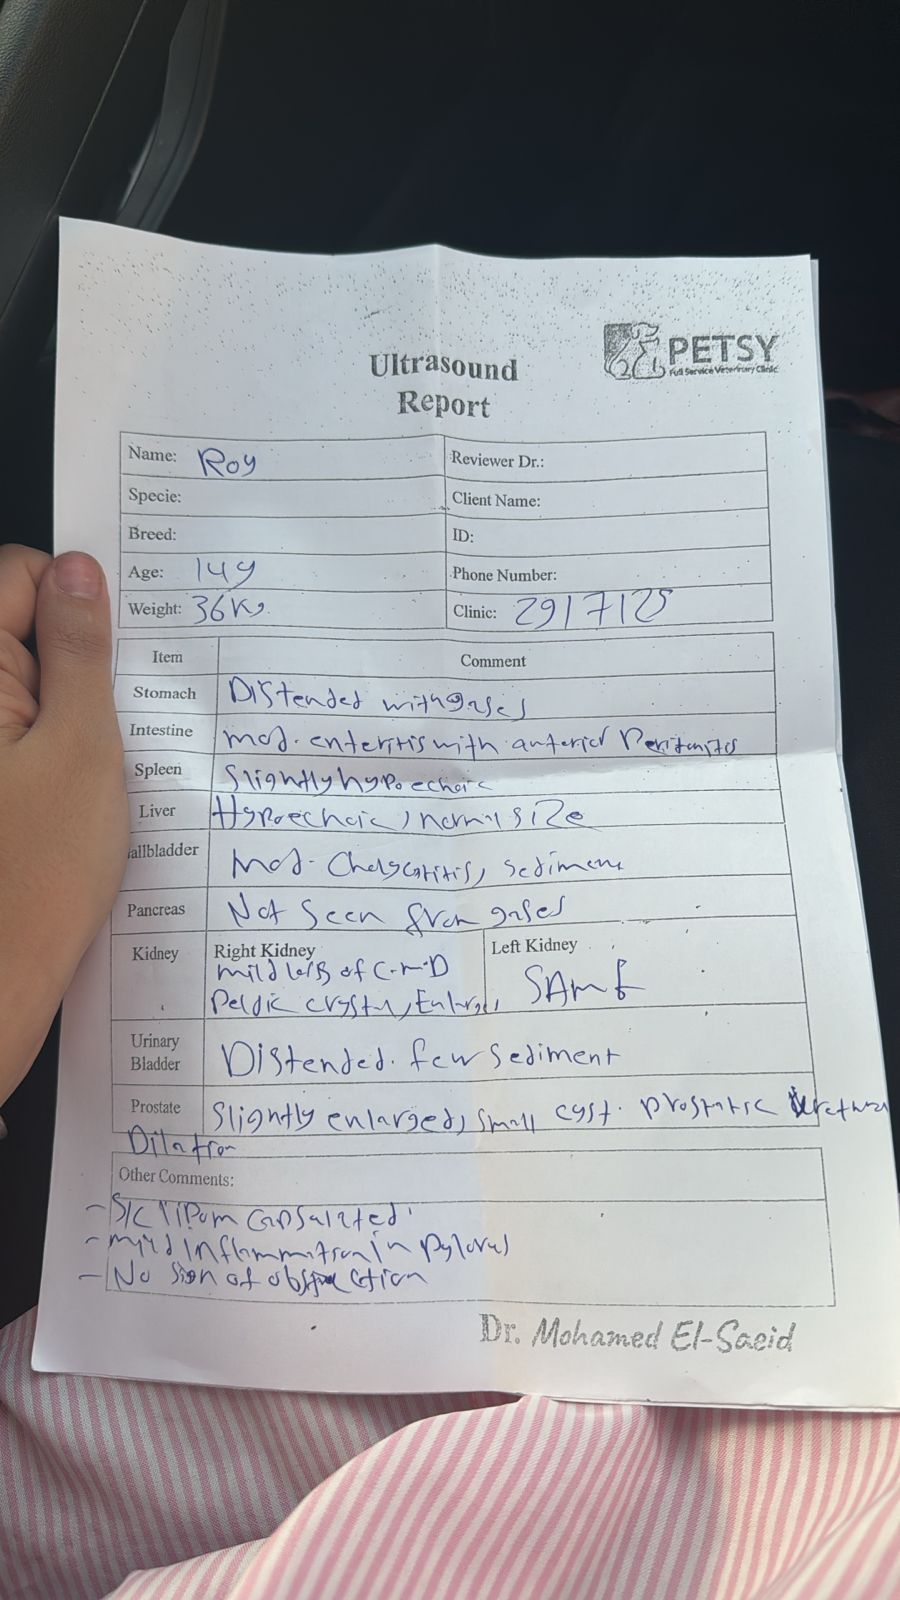 PETSY
Full Service Veterinary Clinic
Ultrasound
Report
Name: Roy
Reviewer Dr.:
Specie:
Client Name:
Breed:
ID:
Age: 14y
Phone Number:
Weight: 36Kg
Clinic: 29/7/25
Item Comment
Stomach Distended with gases
Intestine mod. enteritis with anterior Peritonitis
Spleen Slightly hypoechoic
Liver Hypoechoic, normal size
allbladder mod. sediment
Pancreas Not Seen from gases
Kidney Right Kidney mild loss of C.M.D
Left Kidney SAmE
Urinary Bladder Distended. few sediment
Prostate Slightly enlarged, small cyst. prostatic
Dilation
Other Comments:
- S/C
- mild inflammation in pylorus
- No sign of obstruction
Dr. Mohamed El-Saeid